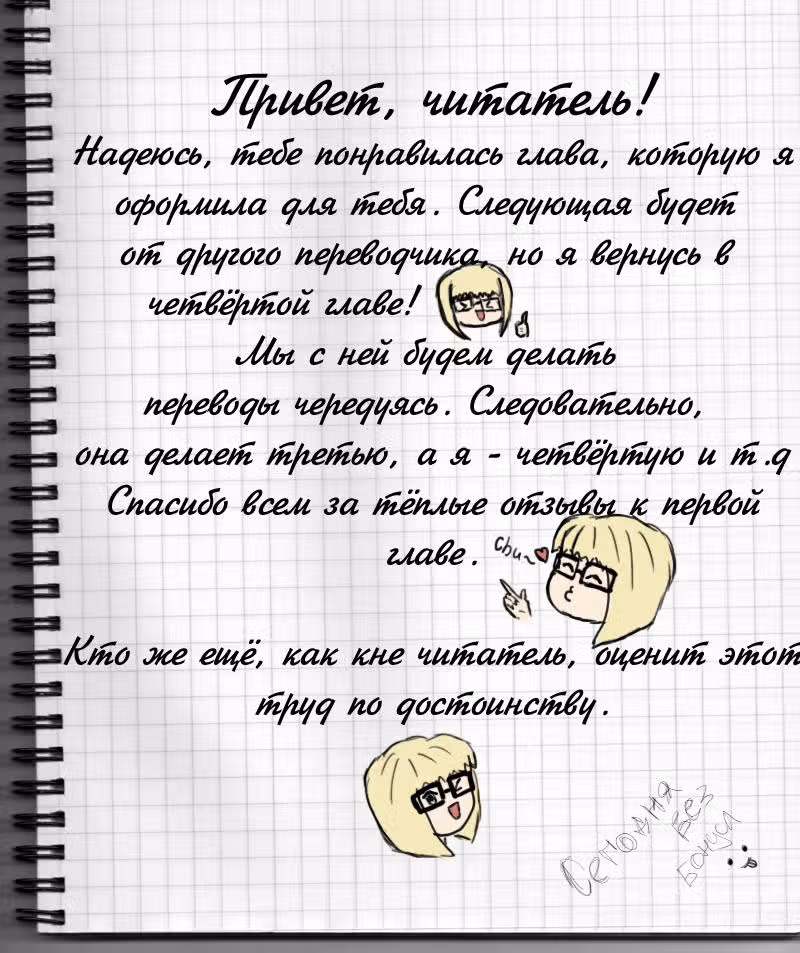 Привет, читатель!
Надеюсь, тебе понравилась глава, которую я
оформила для тебя. Следующая будет
от другого переводчика, но я вернусь в
четвёртой главе!
Мы с ней будем делать
переводы чередуясь. Следовательно,
она делает третью, а я - четвёртую и т.д
Спасибо всем за тёплые отзывы к первой
главе.
Кто же ещё, как кне читатель, оценит этот
труд по достоинству.
без